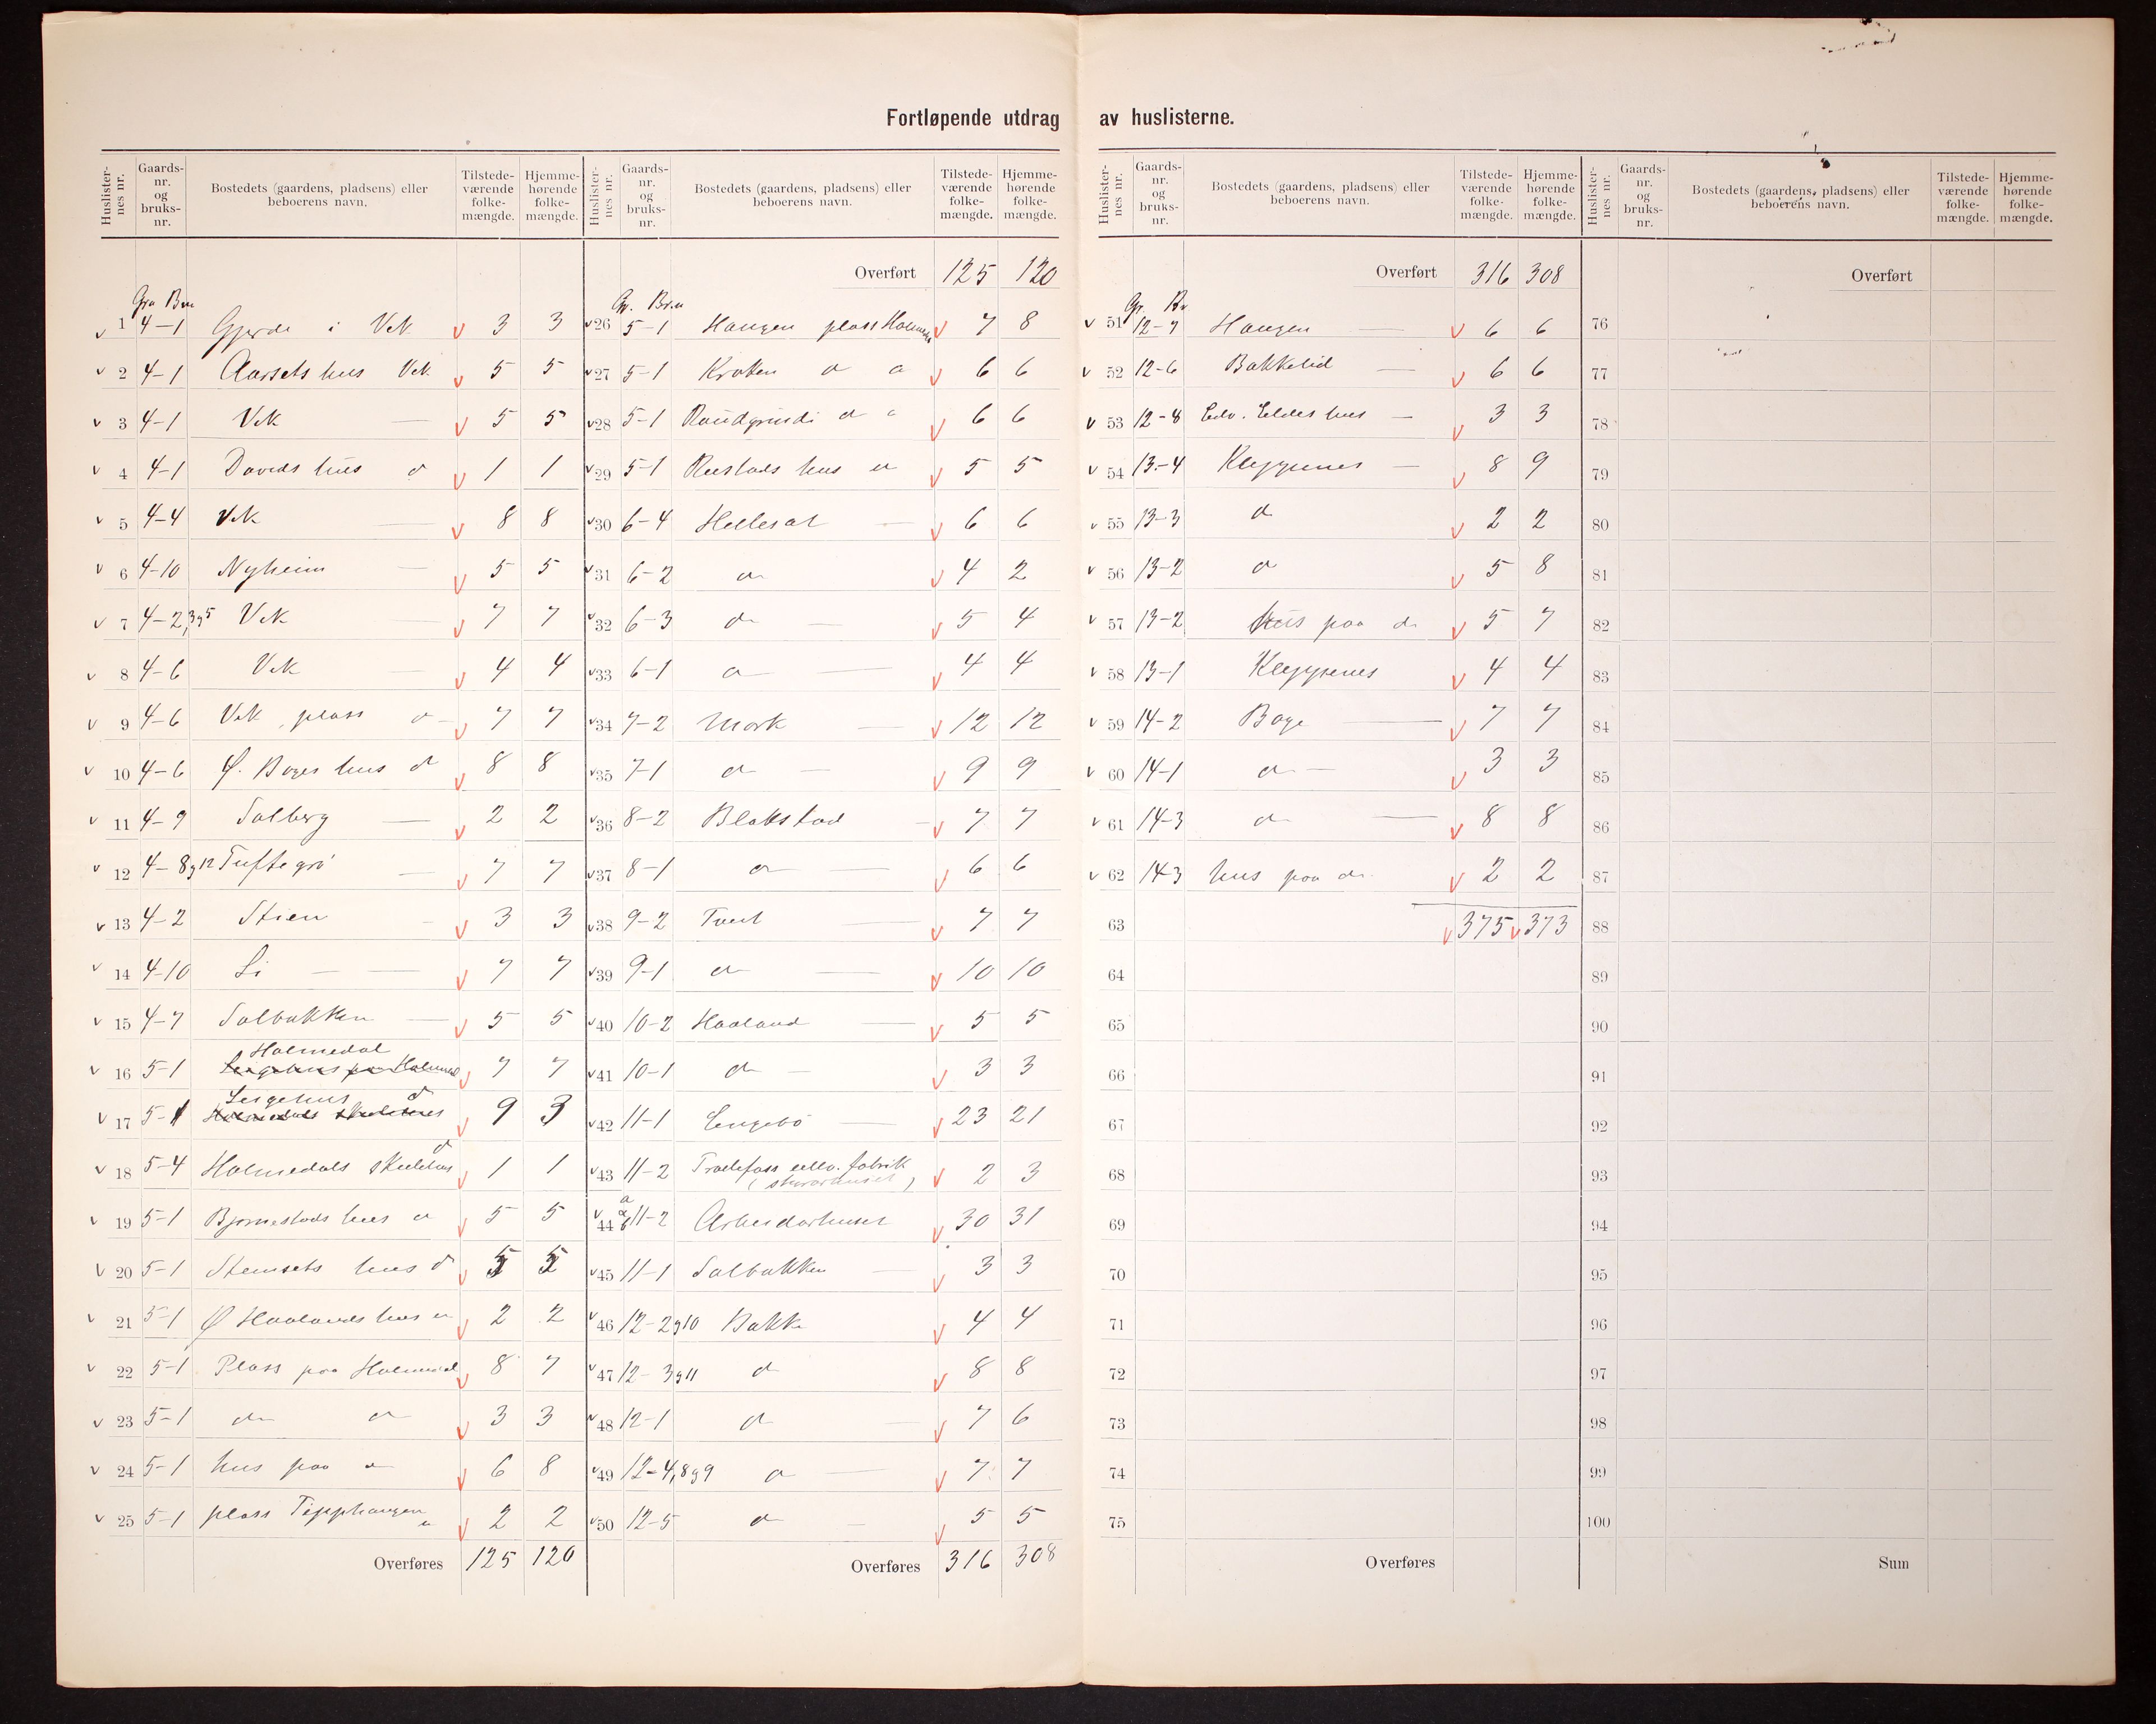 Fortløpende utdrag av huslisterne.
Huslister-nes nr. Gaards-nr. og bruks-nr. Bostedets (gaardens, pladsens) eller beboerens navn. Tilstede-værende folke-mængde. Hjemme-hørende folke-mængde.
1 4-1 Gjerde i Vik 3 3
2 4-1 Aarsets hus Vik 5 5
3 4-1 Vik — 5 5
4 4-1 Davids hus d 1 1
5 4-4 Vik — 8 8
6 4-10 Nyheim — 5 5
7 4-2,3 g 5 Vik — 7 7
8 4-6 Vik — 4 4
9 4-6 Vik, plass d 7 7
10 4-6 Boges hus d 8 8
11 4-9 Solberg — 2 2
12 4-8 g 12 Tuftegrö — 7 7
13 4-2 Stien — 3 3
14 4-10 Li — 7 7
15 4-7 Solbakken — 5 5
16 5-1 Holmedal 7 7
17 5-1 Leigehus d 9 3
18 5-4 Holmedals skulehus d 1 1
19 5-1 Bjørnestads hus d 5 5
20 5-1 Stensets hus d 5 5
21 5-1 Ø Haalands hus d 2 2
22 5-1 Plass paa Holmedal 8 7
23 5-1 do d 3 3
24 5-1 hus paa d 6 8
25 5-1 plass Tipphaugen d 2 2
Overføres 125 120
Huslister-nes nr. Gaards-nr. og bruks-nr. Bostedets (gaardens, pladsens) eller beboerens navn. Tilstede-værende folke-mængde. Hjemme-hørende folke-mængde.
Overført 125 120
26 5-1 Haugen plass Holmedal 7 8
27 5-1 Kroken d d 6 6
28 5-1 d d 6 6
29 5-1 Rustads hus d 5 5
30 6-4 Hellesat — 6 6
31 6-2 d 4 2
32 6-3 do — 5 4
33 6-1 d — 4 4
34 7-2 Mork — 12 12
35 7-1 d — 9 9
36 8-2 Blakstad — 7 7
37 8-1 d — 6 6
38 9-2 Tveit — 7 7
39 9-1 d — 10 10
40 10-2 Haaland — 5 5
41 10-1 do — 3 3
42 11-1 Engebö — 23 21
43 11-2 Traelefoss uldv. fabrik 2 3
44 a b 11-2 Arbeidarhuset 30 31
45 11-1 Solbakken — 3 3
46 12-2 g 10 Bakke 4 4
47 12-3 g 11 d 8 8
48 12-1 d — 7 6
49 12-4,8 g 9 d — 7 7
50 12-5 d — 5 5
Overføres 316 308
Huslister-nes nr. Gaards-nr. og bruks-nr. Bostedets (gaardens, pladsens) eller beboerens navn. Tilstede-værende folke-mængde. Hjemme-hørende folke-mængde.
Overført 316 308
51 12-7 Haugen — 6 6
52 12-6 Bakkelid — 6 6
53 12-8 Edv. Eldes hus — 3 3
54 13-4 Kleppenes — 8 9
55 13-3 d 2 2
56 13-2 d 5 8
57 13-2 hus paa do 5 7
58 13-1 Kleppenes 4 4
59 14-2 Boge — 7 7
60 14-1 d — 3 3
61 14-3 d — 8 8
62 14-3 hus paa do 2 2
63 375 373
64
65
66
67
68
69
70
71
72
73
74
75
Overføres
Huslister-nes nr. Gaards-nr. og bruks-nr. Bostedets (gaardens, pladsens) eller beboerens navn. Tilstede-værende folke-mængde. Hjemme-hørende folke-mængde.
Overført
76
77
78
79
80
81
82
83
84
85
86
87
88
89
90
91
92
93
94
95
96
97
98
99
100
Sum